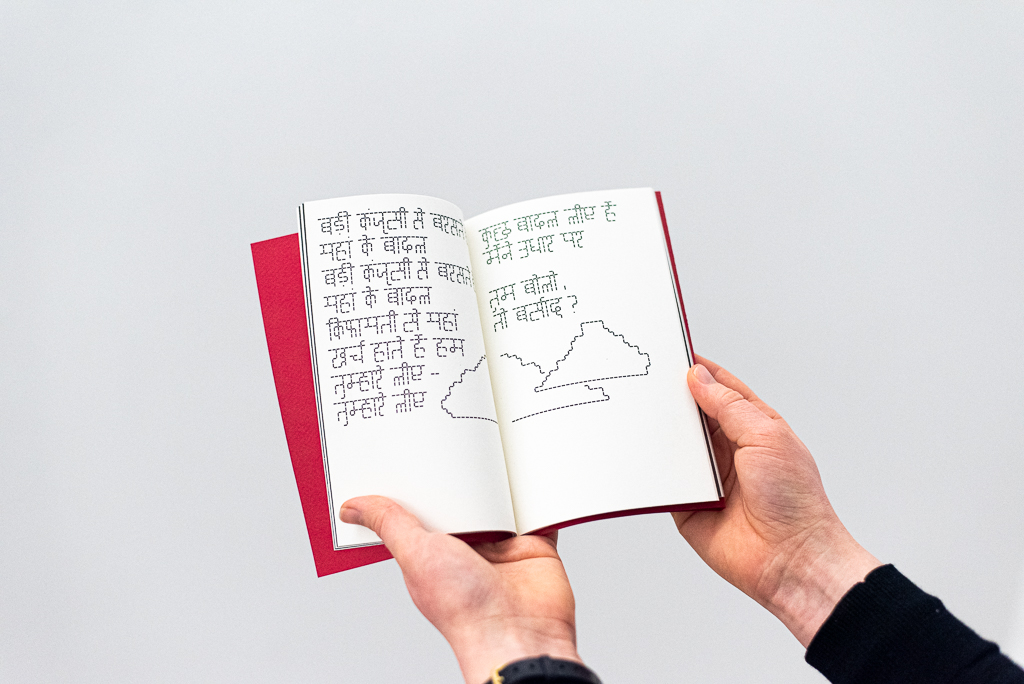 बड़ी कंजूसी से बरसते
यहां के बादल
बड़ी कंजूसी से बरसते
यहां के बादल
किफायती से यहां
खर्च होते हैं हम
तुम्हारे लीए --
तुम्हारे लीए
कुछ बादल लीए हैं
मैंने उधार पर
तुम बोलो,
तो बर्साद ?